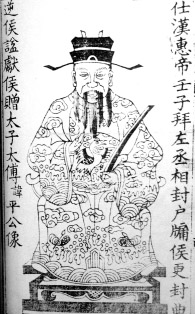 仕漢惠帝壬子拜左丞相封户牖侯更封曲
逆侯謚獻侯贈太子太傅諱平公像